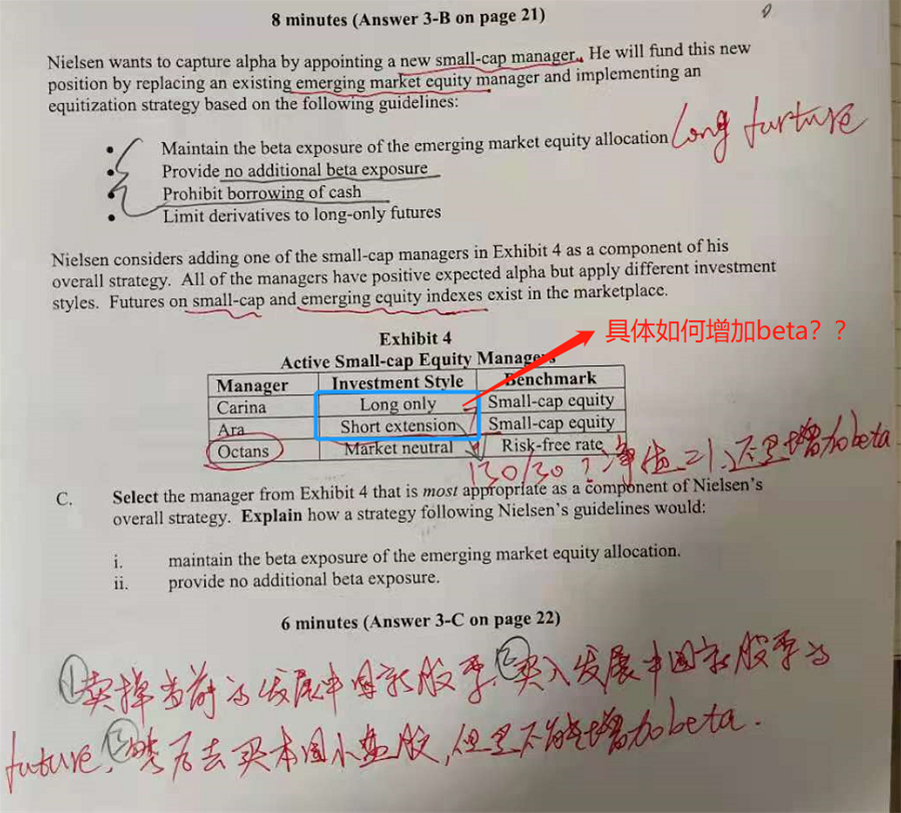 8 minutes (Answer 3-B on page 21)
Nielsen wants to capture alpha by appointing a new small-cap manager. He will fund this new
position by replacing an existing emerging market equity manager and implementing an
equitization strategy based on the following guidelines:
• Maintain the beta exposure of the emerging market equity allocation long furture
• Provide no additional beta exposure
• Prohibit borrowing of cash
• Limit derivatives to long-only futures
Nielsen considers adding one of the small-cap managers in Exhibit 4 as a component of his
overall strategy. All of the managers have positive expected alpha but apply different investment
styles. Futures on small-cap and emerging equity indexes exist in the marketplace.
具体如何增加beta？？
Exhibit 4
Active Small-cap Equity Managers
Manager Investment Style Benchmark
Carina Long only Small-cap equity
Ara Short extension Small-cap equity
Octans Market neutral Risk-free rate
130/30 ? 净值=1.还是增加beta
C. Select the manager from Exhibit 4 that is most appropriate as a component of Nielsen's
overall strategy. Explain how a strategy following Nielsen's guidelines would:
i. maintain the beta exposure of the emerging market equity allocation.
ii. provide no additional beta exposure.
6 minutes (Answer 3-C on page 22)
①卖掉当前的发展中国家股票.②买入发展中国家股票的
future.③然后去买本国小盘股,但是不能增加beta.